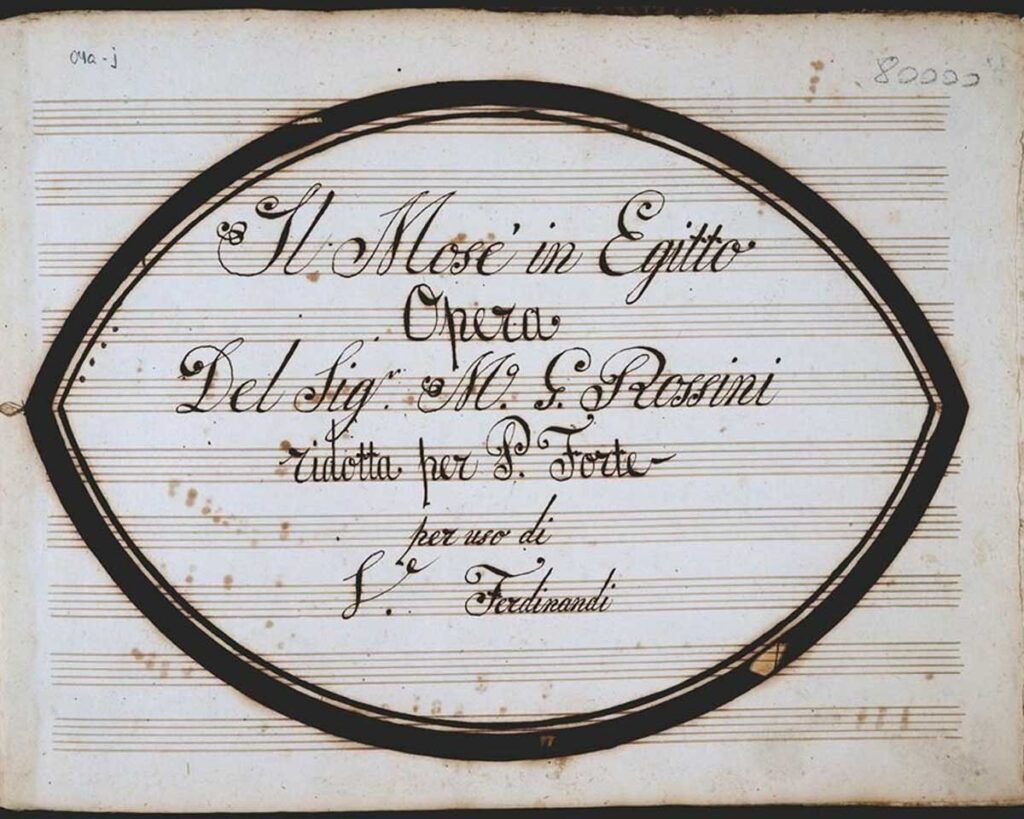 04a-j
80000
Il Mosè in Egitto
Opera
Del Sigr. M. G. Rossini
ridotta per P. Forte
per uso di
Ferdinandi